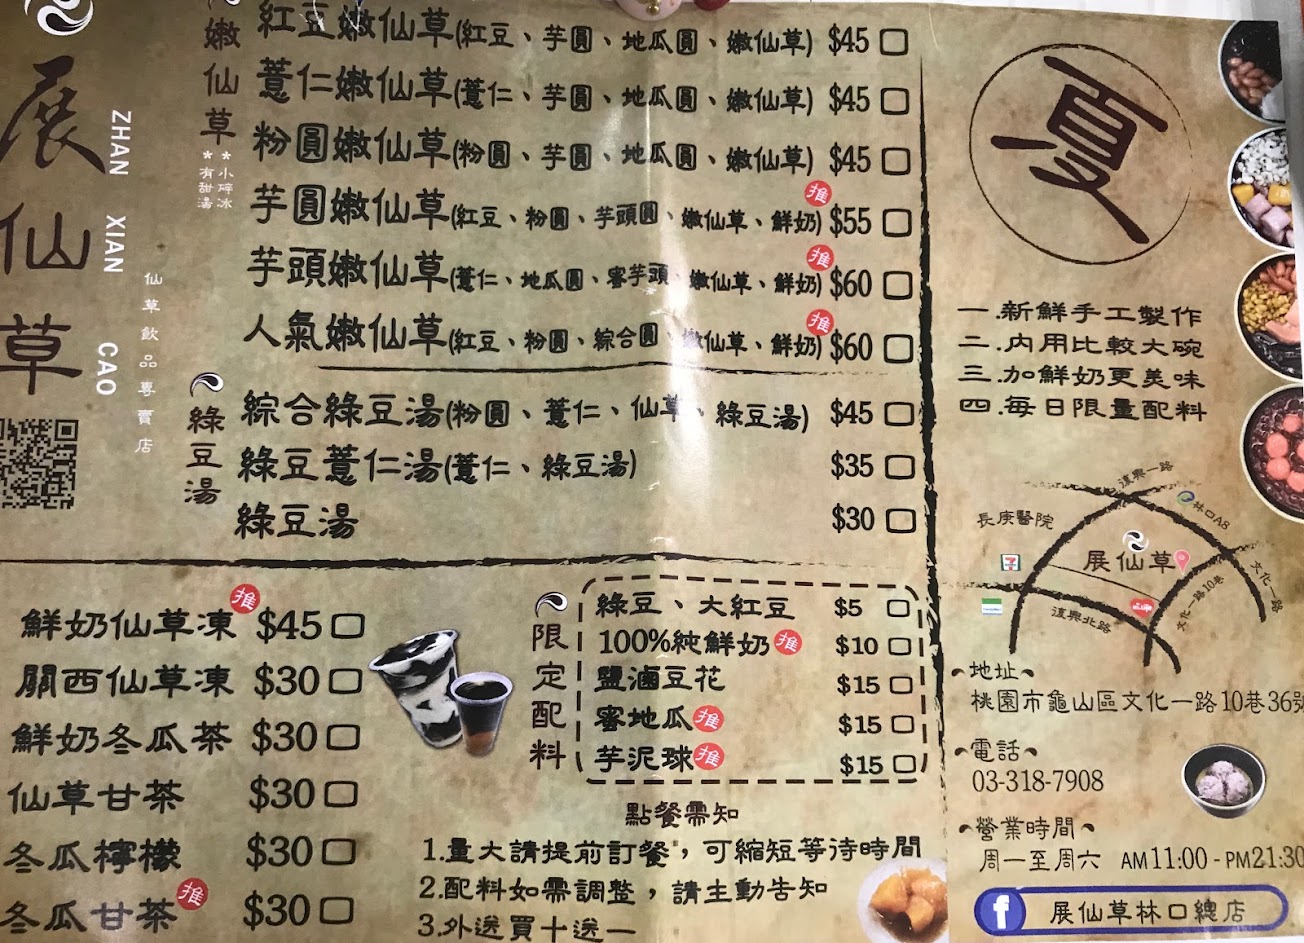 展仙草
ZHAN XIAN CAO
仙草飲品專賣店
嫩仙草
*小碎冰
*有甜湯
紅豆嫩仙草(紅豆、芋圓、地瓜圓、嫩仙草) $45
薏仁嫩仙草(薏仁、芋圓、地瓜圓、嫩仙草) $45
粉圓嫩仙草(粉圓、芋圓、地瓜圓、嫩仙草) $45
芋圓嫩仙草(紅豆、粉圓、芋頭圓、嫩仙草、鮮奶) 推 $55
芋頭嫩仙草(薏仁、地瓜圓、蜜芋頭、嫩仙草、鮮奶) 推 $60
人氣嫩仙草(紅豆、粉圓、綜合圓、嫩仙草、鮮奶) 推 $60
綠豆湯
綜合綠豆湯(粉圓、薏仁、仙草、綠豆湯) $45
綠豆薏仁湯(薏仁、綠豆湯) $35
綠豆湯 $30
鮮奶仙草凍 推 $45
關西仙草凍 $30
鮮奶冬瓜茶 $30
仙草甘茶 $30
冬瓜檸檬 $30
冬瓜甘茶 推 $30
限定配料
綠豆、大紅豆 $5
100%純鮮奶 推 $10
鹽滷豆花 $15
蜜地瓜 推 $15
芋泥球 推 $15
點餐需知
1.量大請提前訂餐,可縮短等待時間
2.配料如需調整,請主動告知
3.外送買十送一
夏
一.新鮮手工製作
二.內用比較大碗
三.加鮮奶更美味
四.每日限量配料
復興一路
林口A8
長庚醫院
展仙草
文化一路
文化一路10巷
復興北路
地址
桃園市龜山區文化一路10巷36號
電話
03-318-7908
營業時間
周一至周六 AM11:00 - PM21:30
展仙草林口總店